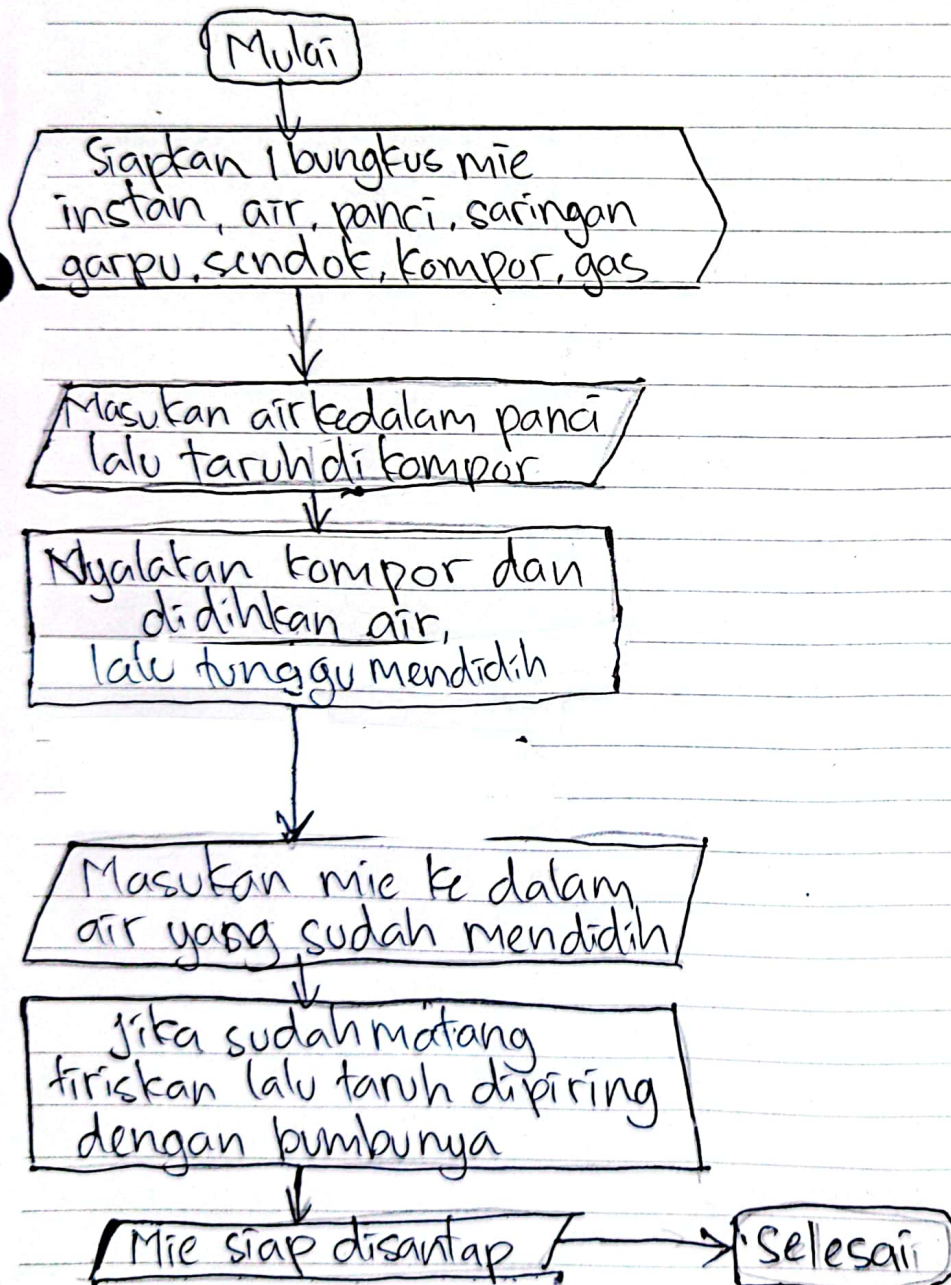 Mulai
Siapkan 1 bungkus mie
instan, air, panci, saringan
garpu, sendok, kompor, gas
Masukan air kedalam panci
lalu taruh di kompor
Nyalakan kompor dan
didihkan air,
lalu tunggu mendidih
Masukan mie ke dalam
air yang sudah mendidih
Jika sudah matang
tiriskan lalu taruh dipiring
dengan bumbunya
Mie siap disantap
Selesai